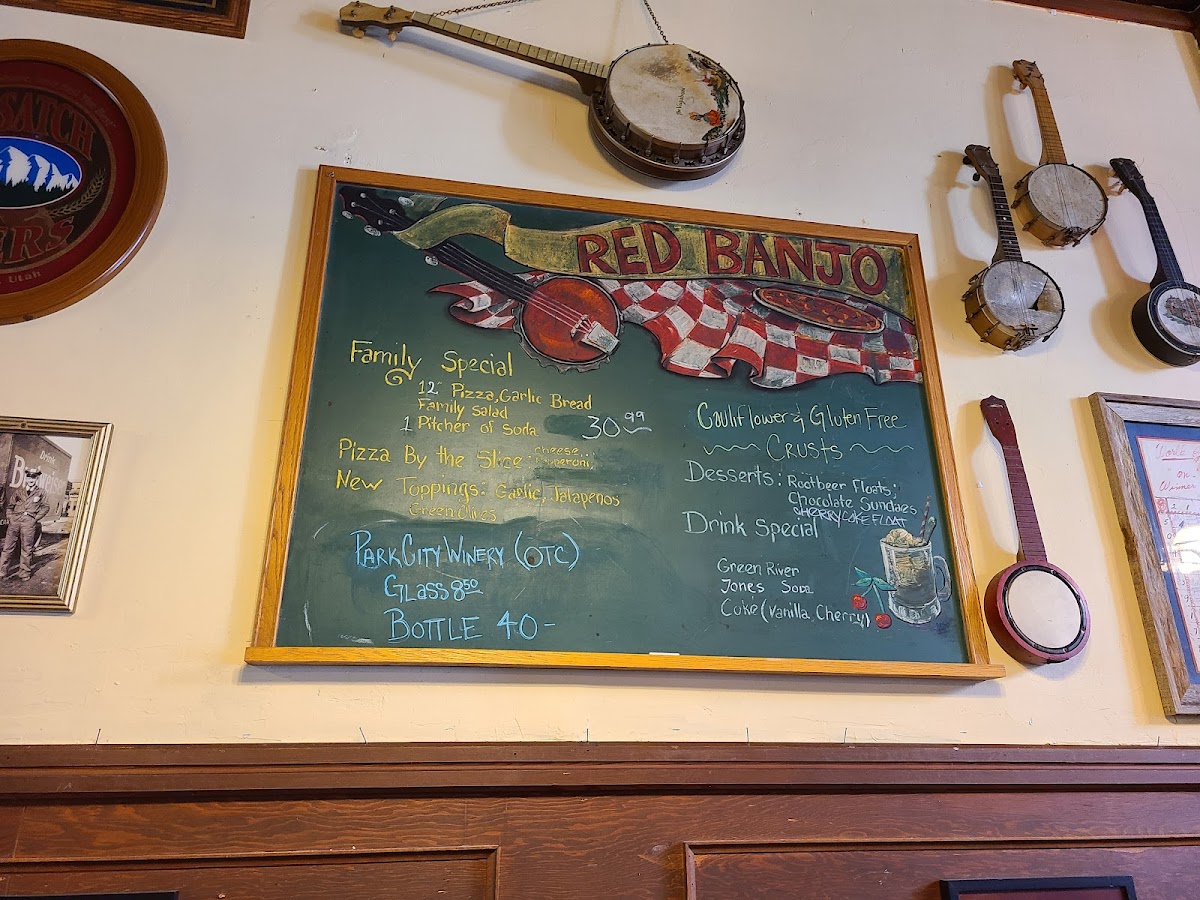 SATCH
ERS
Utah
Drink
RED BANJO
Family Special
12" Pizza, Garlic Bread
Family salad
1 Pitcher of Soda 30 99
Pizza By the Slice: cheese,
Pepperoni,
New Toppings: Garlic, Jalapenos
Green Olives
PARK CITY WINERY (OTC)
GLASS 8 50
BOTTLE 40-
Cauliflower & Gluten Free
Crusts
Desserts: Rootbeer Floats,
Chocolate Sundaes
CHERRY COKE FLOAT
Drink Special
Green River
Jones Soda
Coke (Vanilla, Cherry)